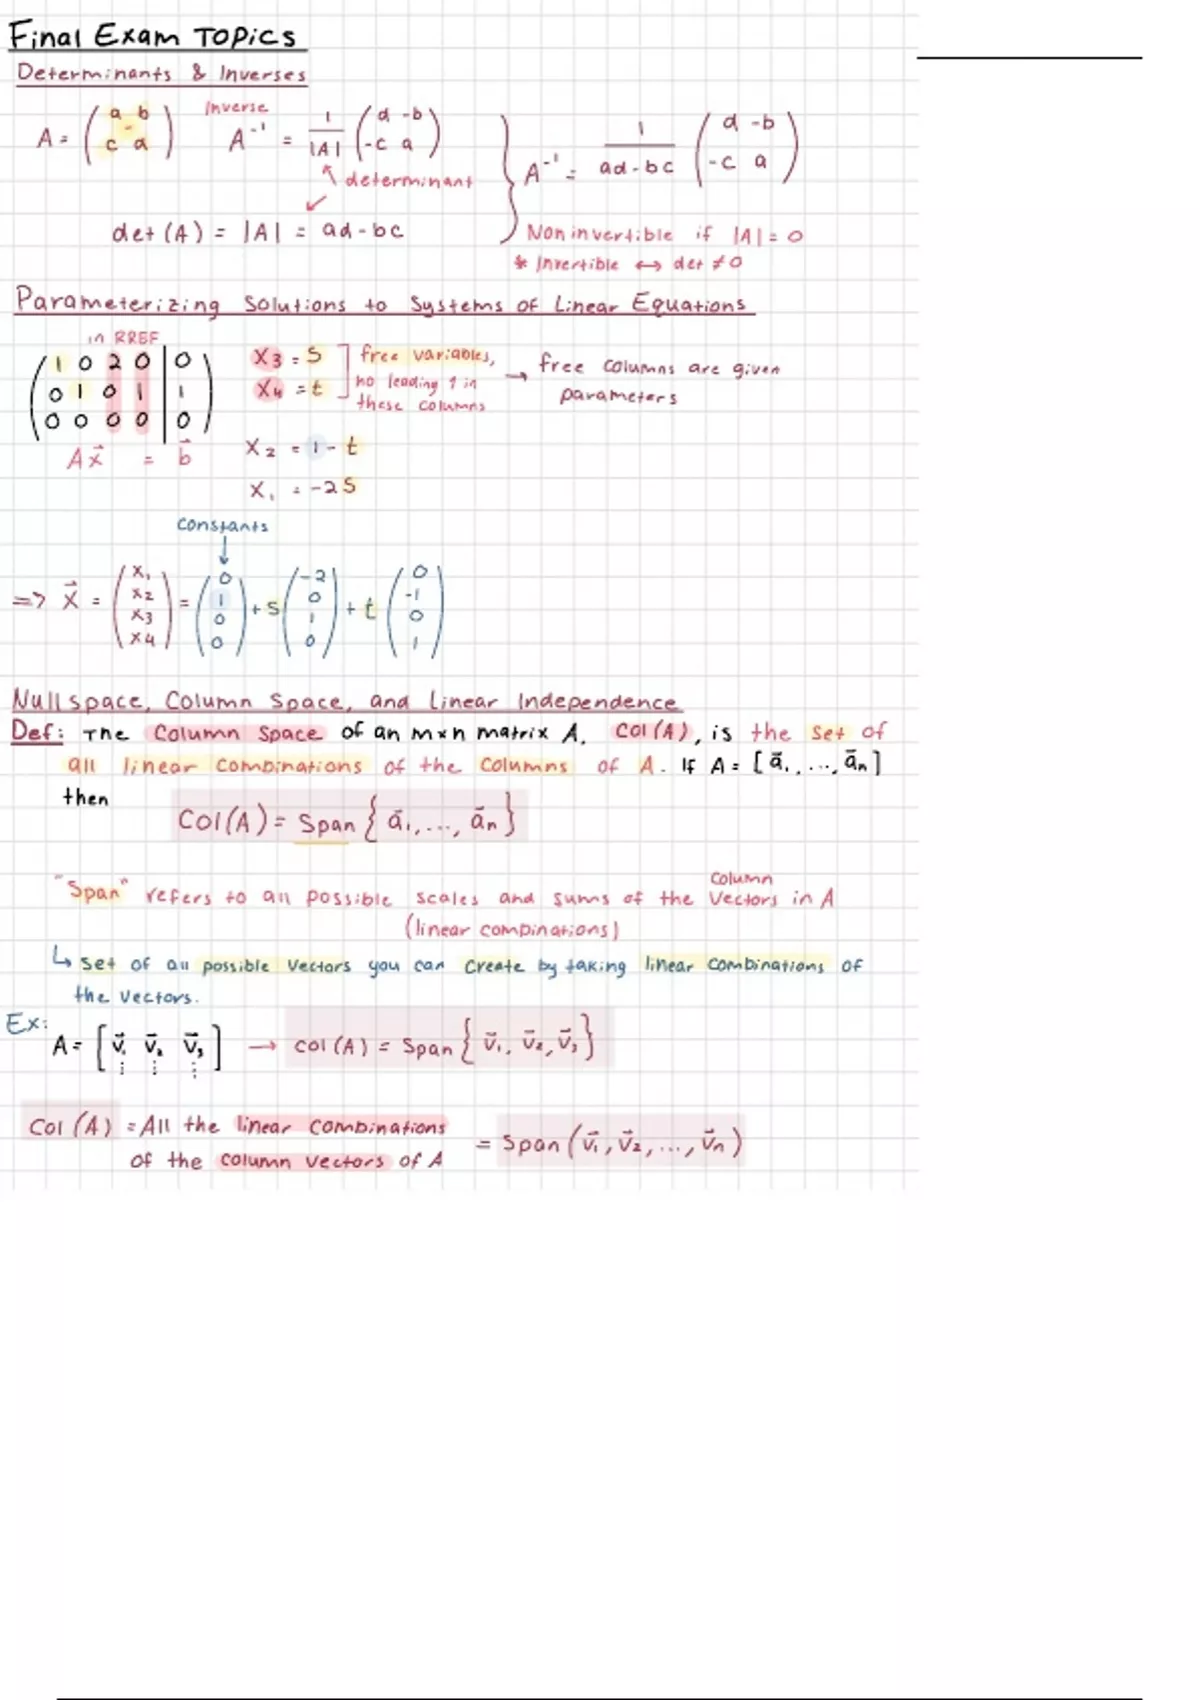 Final Exam Topics
Determinants & Inverses
A = ( a b ; c d ) Inverse A⁻¹ = 1/|A| ( d -b ; -c a ) } A⁻¹ = 1/(ad-bc) ( d -b ; -c a )
determinant
det (A) = |A| = ad-bc
Noninvertible if |A| = 0
* Invertible ↔ det ≠ 0
Parameterizing Solutions to Systems of Linear Equations
in RREF
( 1 0 2 0 | 0 )
( 0 1 0 1 | 1 )
( 0 0 0 0 | 0 )
Ax⃗ = b⃗
X3 = S
X4 = t
free variables,
no leading 1 in
these columns
→ free columns are given
parameters
X2 = 1 - t
X1 = -2S
Constants
=> X⃗ = ( X1 X2 X3 X4 ) = ( 0 1 0 0 ) + S ( -2 0 1 0 ) + t ( 0 -1 0 1 )
Nullspace, Column Space, and Linear Independence
Def: The Column Space of an m×n matrix A, Col(A), is the set of
all linear combinations of the columns of A. If A = [a⃗1, ..., a⃗n]
then
Col(A) = Span { a⃗1, ..., a⃗n }
"Span" refers to all possible scales and sums of the column vectors in A
(linear combinations)
↳ set of all possible vectors you can create by taking linear combinations of
the vectors.
Ex:
A = [ v⃗1 v⃗2 v⃗3 ] → col(A) = Span { v⃗1, v⃗2, v⃗3 }
Col (A) = All the linear combinations
of the column vectors of A
= Span (v⃗1, v⃗2, ..., v⃗n)